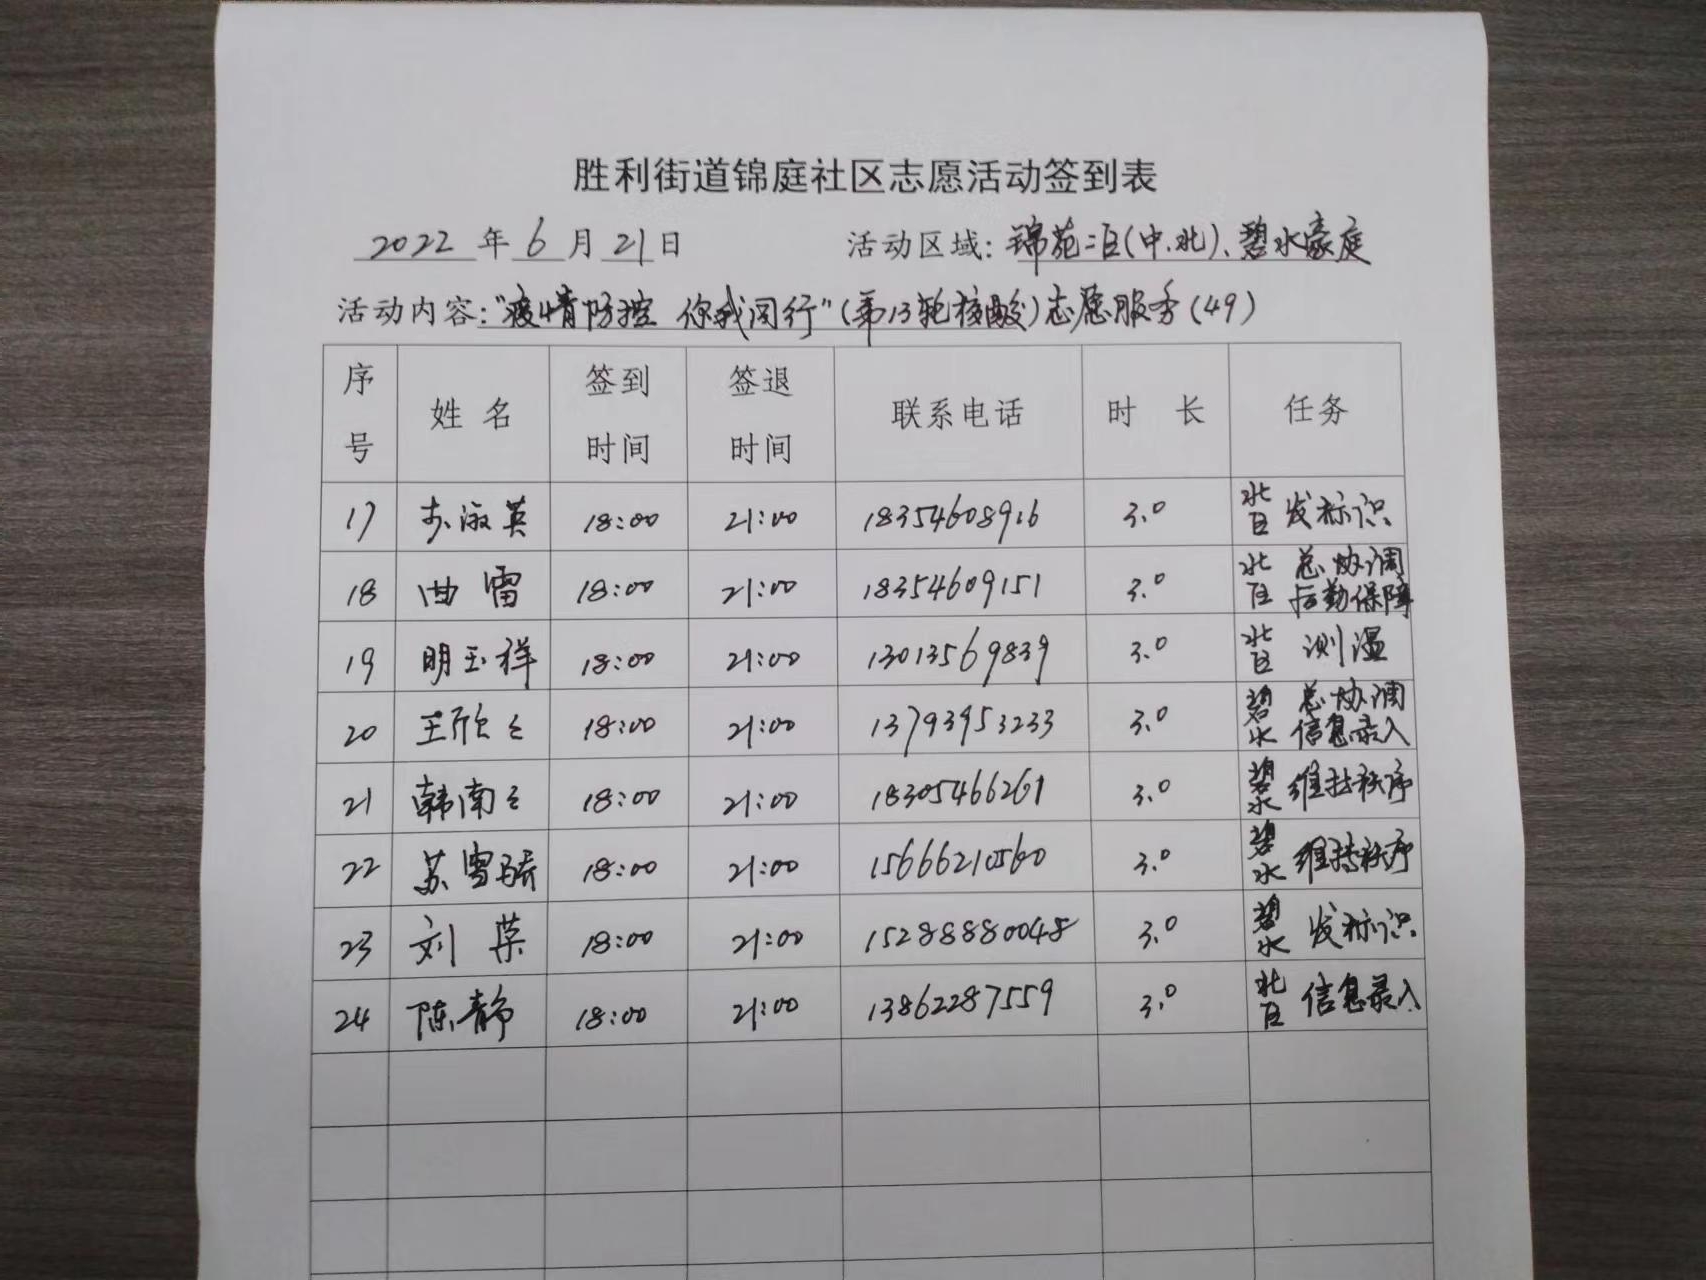 胜利街道锦庭社区志愿活动签到表
2022年6月21日 活动区域:锦苑二区(中.北)、碧水豪庭
活动内容:"疫情防控 你我同行"(第13轮核酸)志愿服务(49)
序号 姓名 签到时间 签退时间 联系电话 时长 任务
17 李淑英 18:00 21:00 18354608916 3.0 北区 发标识
18 曲雷 18:00 21:00 18354609151 3.0 北区 总协调 后勤保障
19 明玉祥 18:00 21:00 13013569839 3.0 北区 测温
20 王欣々 18:00 21:00 13793953233 3.0 碧水 总协调 信息录入
21 韩南々 18:00 21:00 18305466261 3.0 碧水 维持秩序
22 苏雪骄 18:00 21:00 15666210560 3.0 碧水 维持秩序
23 刘荣 18:00 21:00 15288880048 3.0 碧水 发标识
24 陈静 18:00 21:00 13862287559 3.0 北区 信息录入